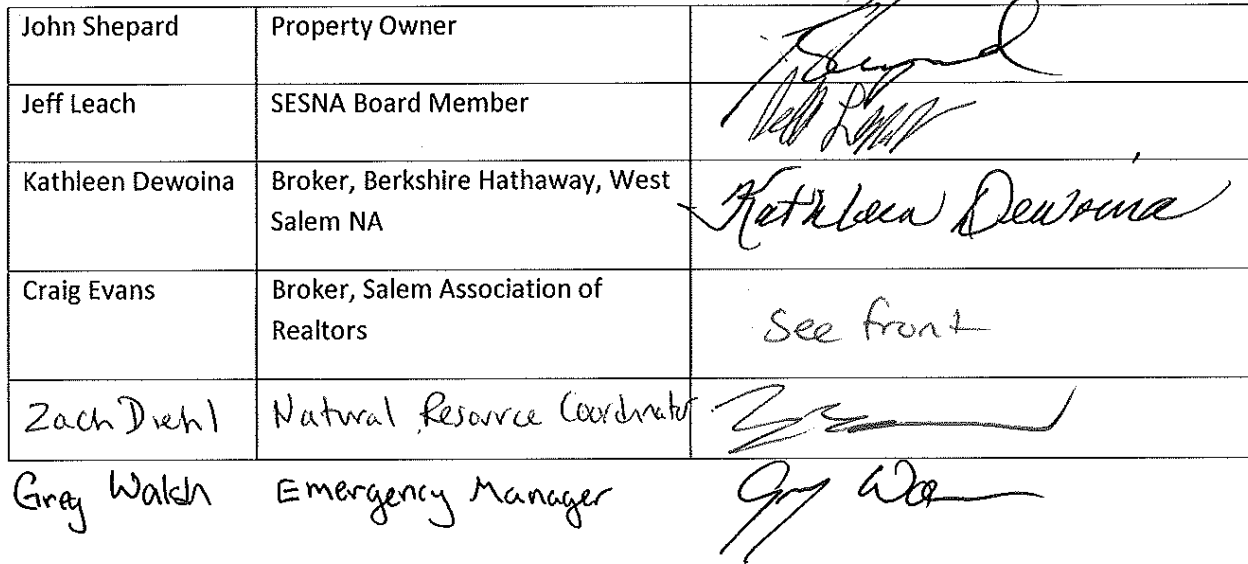 John Shepard Property Owner
Jeff Leach SESNA Board Member Jeff
Kathleen Dewoina Broker, Berkshire Hathaway, West Kathleen Dewoina
Salem NA
Craig Evans Broker, Salem Association of See front
Realtors
Zach Diehl Natural Resource Coordinator
Greg Walsh Emergency Manager Greg